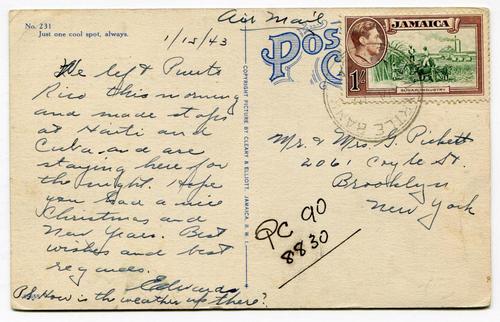 No. 231
Just one cool spot, always.
1/15/43
Air Mail
We left Puerto
Rico this morning
and made stops
at Haiti and
Cuba and are
staying here for
the night. Hope
you had a nice
Christmas and
New Years. Best
wishes and best
regards.
Edwards
P.S. How is the weather up there?
COPYRIGHT PICTURE BY CLEARY & ELLIOTT, JAMAICA, B. W. I.
POS
C
JAMAICA
SUGAR INDUSTRY
1/-
Mr. & Mrs. S. Pickett
2061 Coyle St.
Brooklyn
New York
PC 90
8830